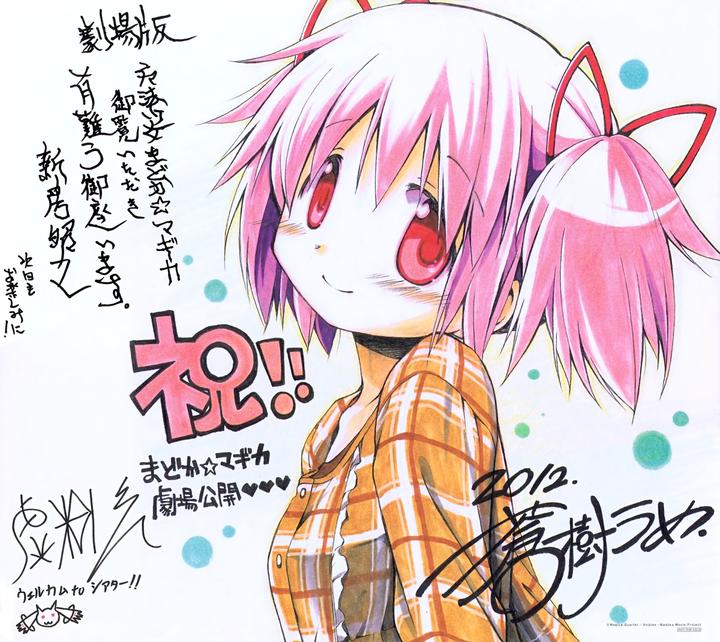 劇場版
魔法少女まどか☆マギカ
御覧いただき
有難う御座います。
新房昭之
次回も
お楽しみに!
祝!!
まどか☆マギカ
劇場公開♥♥♥
ウェルカム to シアター!!
2012.
蒼樹うめ.
©Magica Quartet / Aniplex・Madoka Movie Project